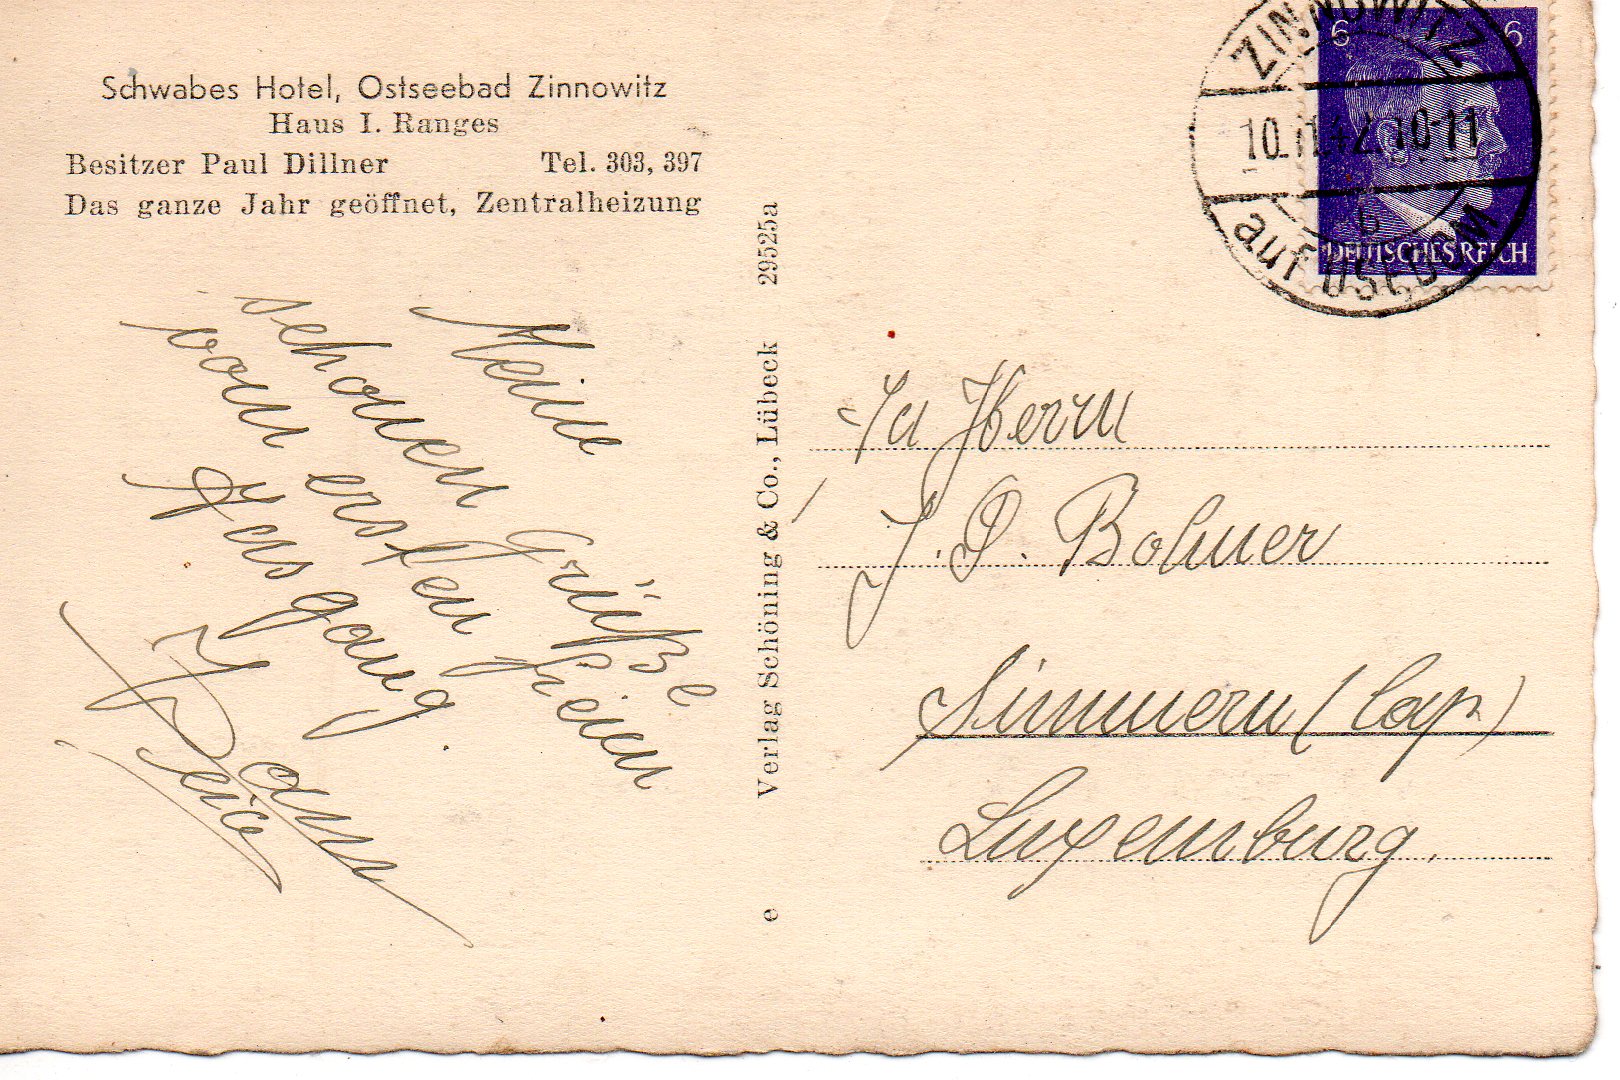 Schwabes Hotel, Ostseebad Zinnowitz
Haus I. Ranges
Besitzer Paul Dillner Tel. 303, 397
Das ganze Jahr geöffnet, Zentralheizung
Meine
schonen Grüße
vom ersten freien
Ausgang.
e Verlag Schöning & Co., Lübeck 29525a
ZINNOWITZ
10-11
auf USEDOM
b
6 6
DEUTSCHES REICH
Herrn
J. O. Bohmer
Simmern (Cap)
Luxemburg.